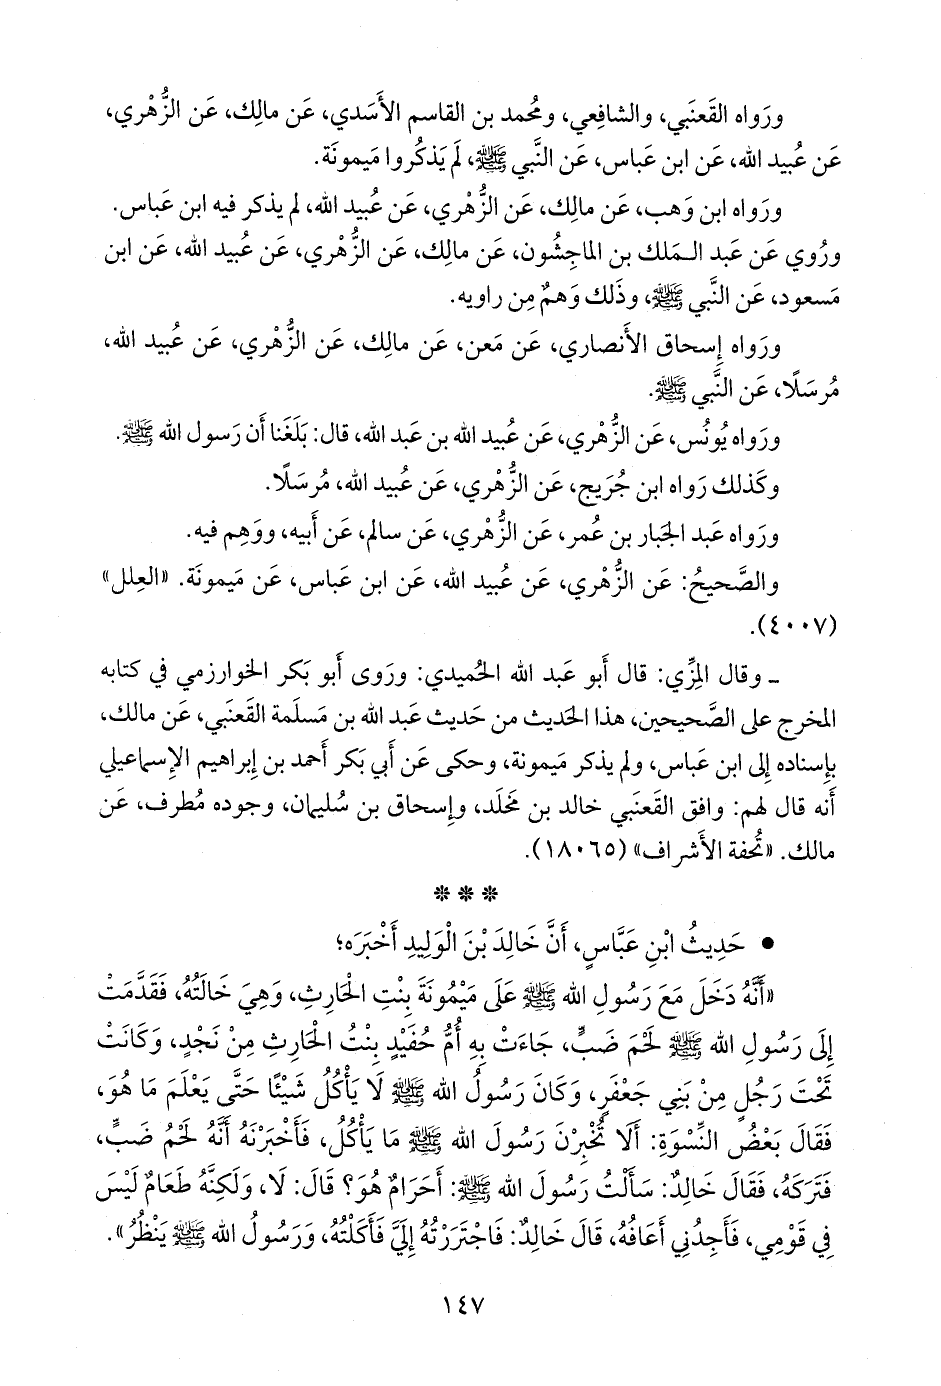 ورَواه القَعنَبي، والشافِعي، ومُحمد بن القاسم الأَسَدي، عَن مالك، عَن الزُّهْري،
عَن عُبيد الله، عَن ابن عَباس، عَن النَّبي ﷺ، لَم يَذكُروا مَيمونَة.
ورَواه ابن وَهب، عَن مالِك، عَن الزُّهْري، عَن عُبيد الله، لم يذكر فيه ابن عَباس.
ورُوي عَن عَبد الـمَلك بن الماجِشُون، عَن مالك، عَن الزُّهْري، عَن عُبيد الله، عَن ابن
مَسعود، عَن النَّبي ﷺ، وذَلك وَهمٌ مِن راويه.
ورَواه إِسحاق الأَنصاري، عَن مَعن، عَن مالِك، عَن الزُّهْري، عَن عُبيد الله،
مُرسَلًا، عَن النَّبي ﷺ.
ورَواه يُونُس، عَن الزُّهْري، عَن عُبيد الله بن عَبد الله، قال: بَلَغَنا أَن رَسول الله ﷺ.
وكَذلك رَواه ابن جُرَيج، عَن الزُّهْري، عَن عُبيد الله، مُرسَلًا.
ورَواه عَبد الجَبار بن عُمر، عَن الزُّهْري، عَن سالم، عَن أَبيه، ووَهِم فيه.
والصَّحيحُ: عَن الزُّهْري، عَن عُبيد الله، عَن ابن عَباس، عَن مَيمونَة. «العِلل»
(٤٠٠٧).
ـ وقال المِزِّي: قال أَبو عَبد الله الحُميدي: ورَوى أَبو بَكر الخوارزمي في كتابه
المخرج على الصَّحيحين، هذا الحَديث من حَديث عَبد الله بن مَسلَمة القَعنَبي، عَن مالك،
بإِسناده إِلى ابن عَباس، ولم يذكر مَيمونة، وحكى عَن أَبي بَكر أَحمد بن إِبراهيم الإِسماعيلي
أَنه قال لهم: وافق القَعنَبي خالد بن مَخلَد، وإِسحاق بن سُليمان، وجوده مُطرف، عَن
مالك. «تُحفة الأَشراف» (١٨٠٦٥).
* * *
• حَدِيثُ ابْنِ عَبَّاسٍ، أَنَّ خَالِدَ بْنَ الْوَلِيدِ أَخْبَرَه؛
«أَنَّهُ دَخَلَ مَعَ رَسُولِ الله ﷺ عَلَى مَيْمُونَةَ بِنْتِ الحَارِثِ، وَهِيَ خَالَتُهُ، فَقَدَّمَتْ
إِلَى رَسُولِ الله ﷺ لَحْمَ ضَبٍّ، جَاءَتْ بِهِ أُمُّ حُفَيْدٍ بِنْتُ الْحَارِثِ مِنْ نَجْدٍ، وَكَانَتْ
تَحْتَ رَجُلٍ مِنْ بَنِي جَعْفَرٍ، وَكَانَ رَسُولُ الله ﷺ لَا يَأْكُلُ شَيْئًا حَتَّى يَعْلَمَ مَا هُوَ،
فَقَالَ بَعْضُ النِّسْوَةِ: أَلَا تُخْبِرْنَ رَسُولَ الله ﷺ مَا يَأْكُلُ، فَأَخْبَرْنَهُ أَنَّهُ لَحْمُ ضَبٍّ،
فَتَرَكَهُ، فَقَالَ خَالِدٌ: سَأَلْتُ رَسُولَ الله ﷺ: أَحَرَامٌ هُوَ؟ قَالَ: لَا، وَلَكِنَّهُ طَعَامٌ لَيْسَ
فِي قَوْمِي، فَأَجِدُنِي أَعَافُهُ، قَالَ خَالِدٌ: فَاجْتَرَرْتُهُ إِلَيَّ فَأَكَلْتُهُ، وَرَسُولُ الله ﷺ يَنْظُرُ».
١٤٧